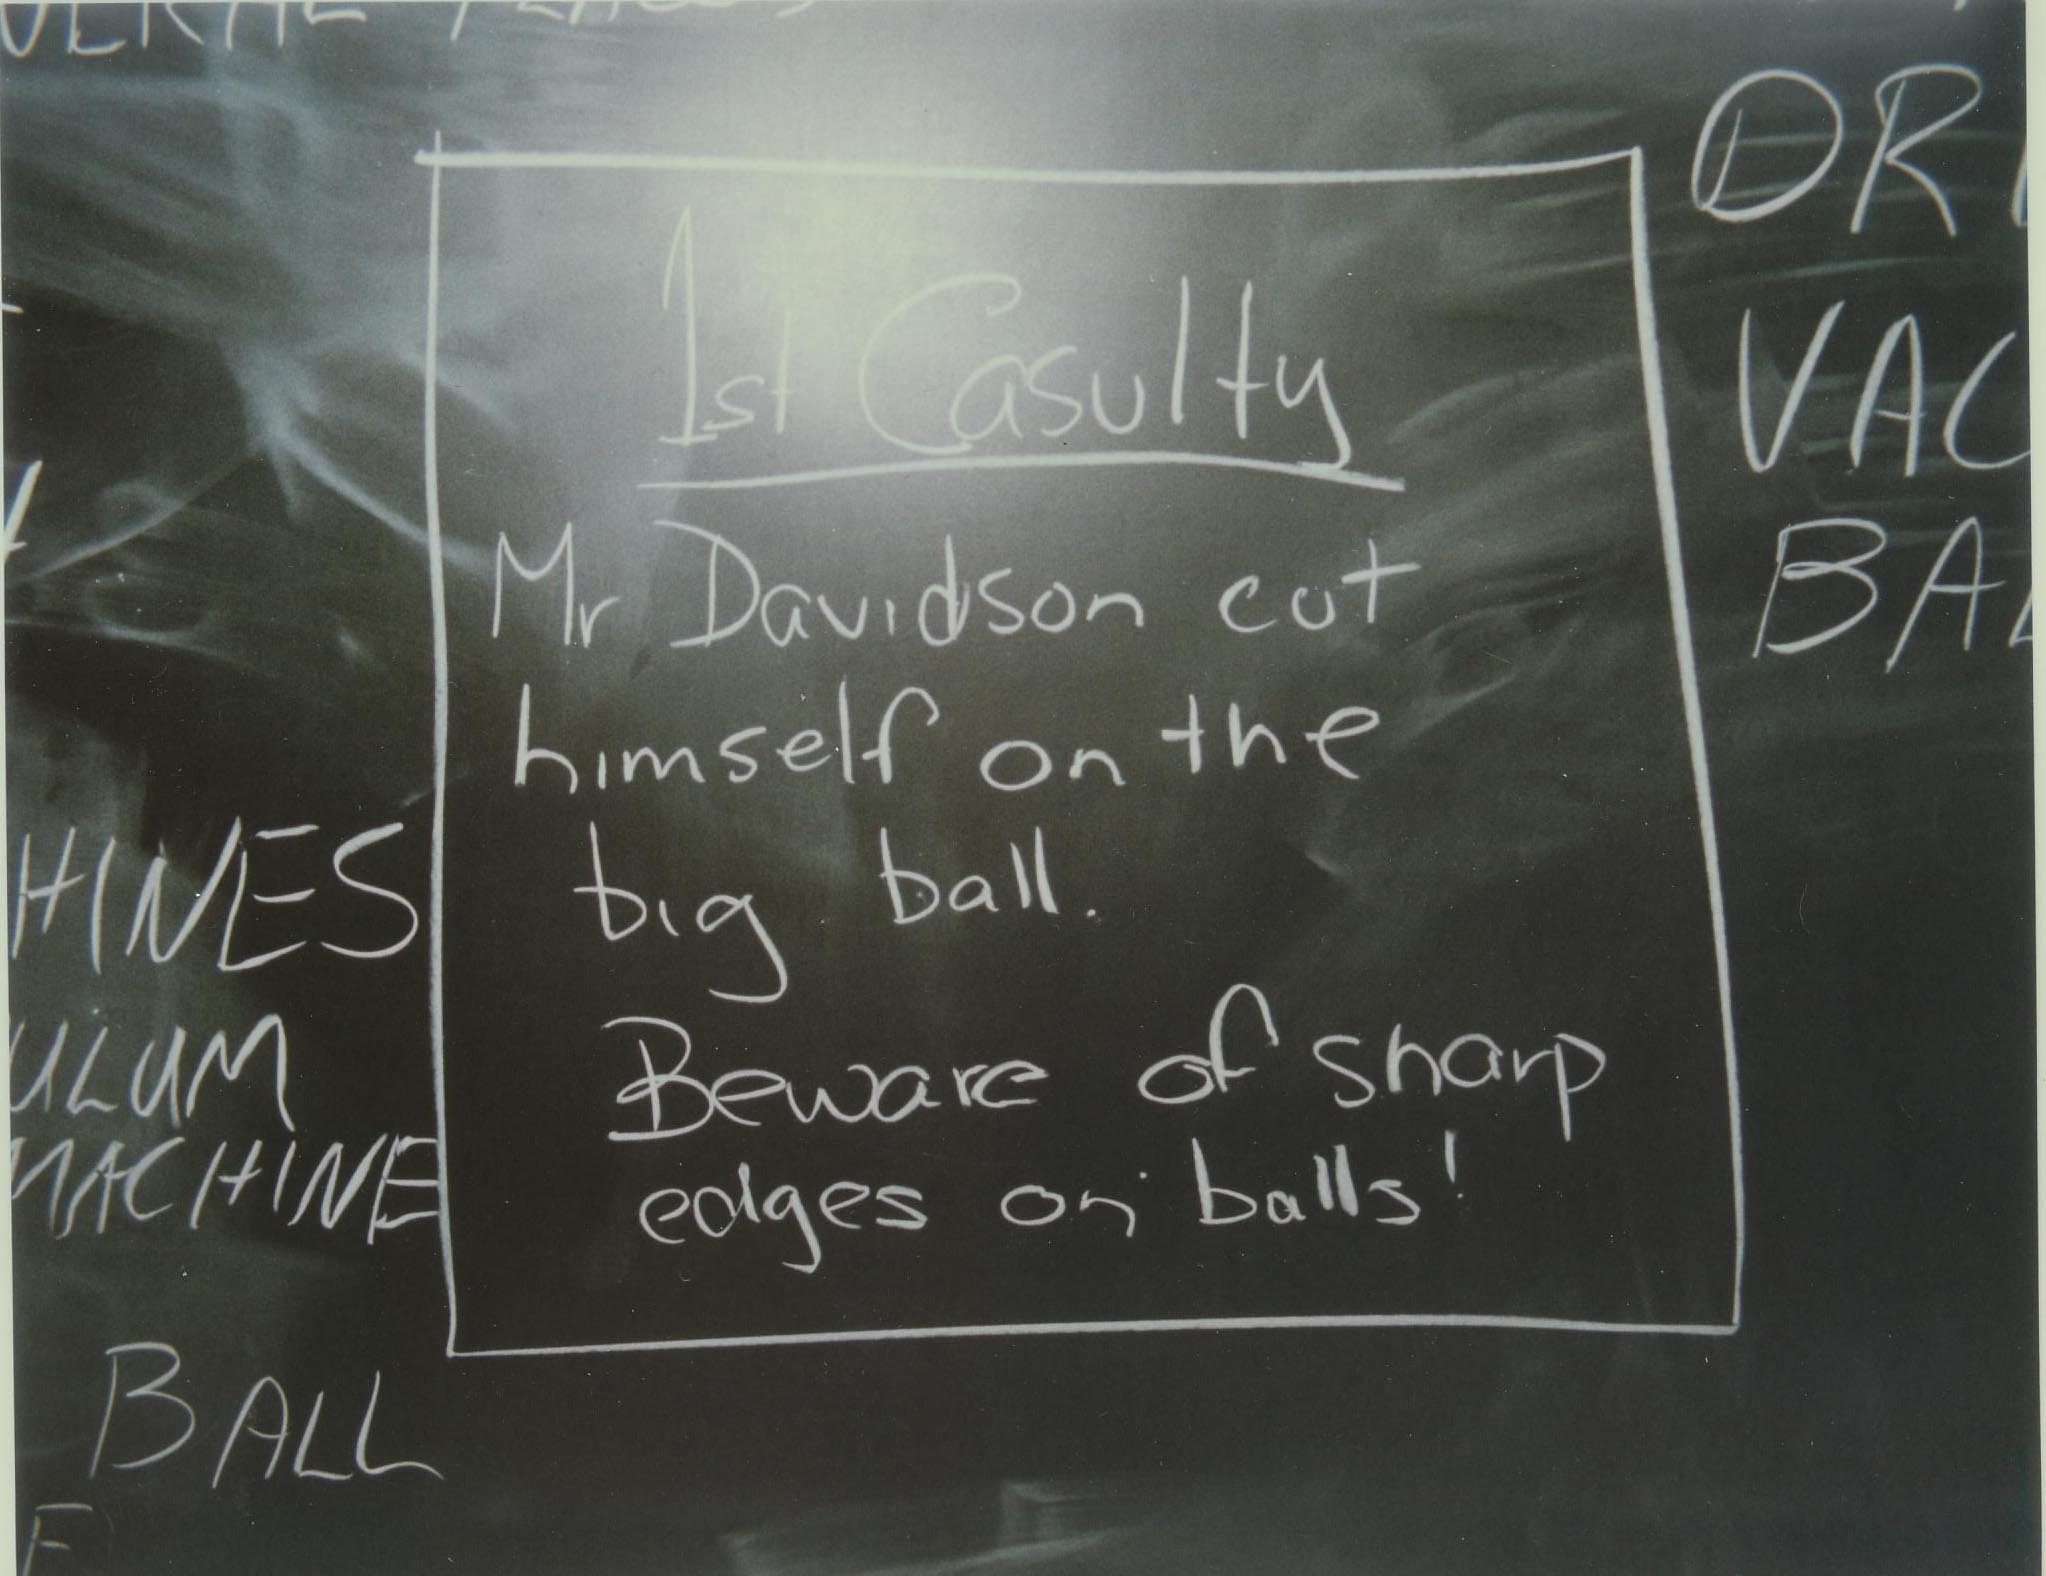 HINES
ULUM
MACHINE
BALL
F
1st Casulty
Mr Davidson cut
himself on the
big ball.
Beware of sharp
edges on balls!
DR
VAC
BAL